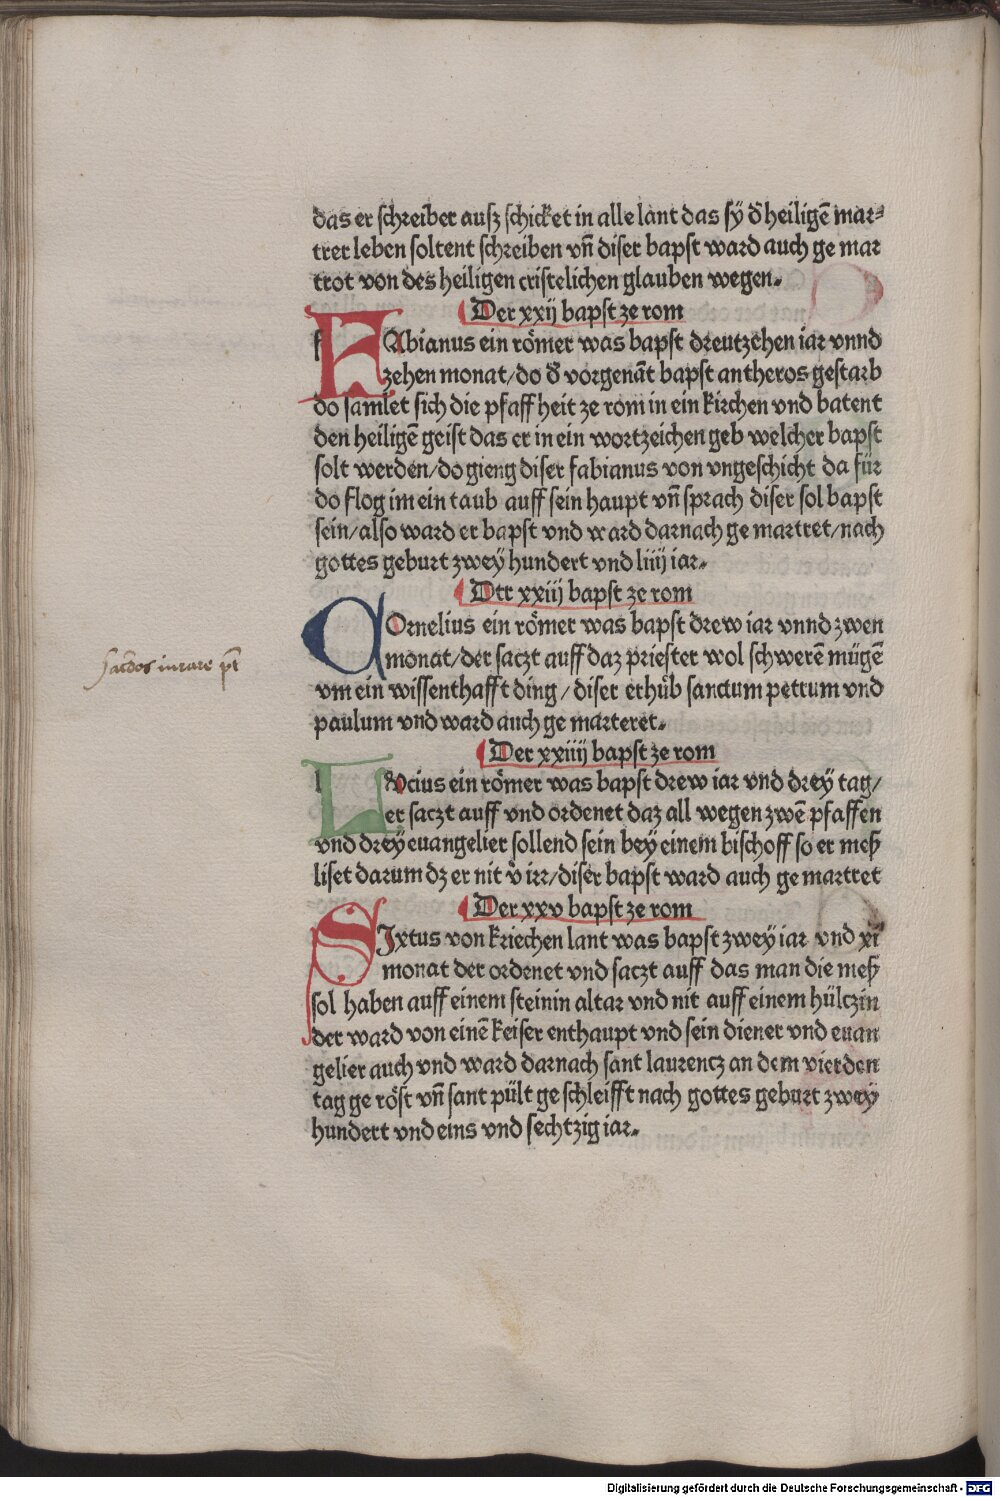 das er schreiber ausz schicket in alle lant das sÿ d̕ heiligē mar⸗
trer leben soltent schreiben vn̄ diser bapst ward auch ge mar
trot von des heiligen cristelichen glauben wegen.
Der xxij bapst ze rom
FAbianus ein rōmer was bapst dreutzehen iar vnnd
zehen monat/do d̕ vorgenāt bapst antheros gestarb
do samlet sich die pfaffheit ze rom in ein kirchen vnd batent
den heiligē geist das er in ein wortzeichen geb welcher bapst
solt werden/do gieng diser fabianus von vngeschicht da für
do flog im ein taub auff sein haupt vn̄ sprach diser sol bapst
sein/also ward er bapst vnd ward darnach ge martret/nach
gottes geburt zweÿ hundert vnd liiij iar.
Der xxiij bapst ze rom
COrnelius ein römer was bapst drew iar vnnd zwen
monat/der saczt auff daz priester wol schwerē mügē
vm ein wissenthafft ding/diser erhůb sanctum petrum vnd
paulum vnd ward auch ge marteret.
sac̄dos iurare pt̄
Der xxiiij bapst ze rom
LVcius ein römer was bapst drew iar vnd dreÿ tag/
er saczt auff vnd ordenet daz all wegen zwē pfaffen
vnd dreÿ euangelier sollend sein beÿ einem bischoff so er meß
liset darum dz er nit v̕ irr/diser bapst ward auch ge martret
Der xxv bapst ze rom
SIxtus von kriechen lant was bapst zweÿ iar vnd xi
monat der ordenet vnd saczt auff das man die meß
sol haben auff einem steinin altar vnd nit auff einem hülczin
der ward von einē keiser enthaupt vnd sein diener vnd euan
gelier auch vnd ward darnach sant laurencz an dem vierden
tag ge röst vn̄ sant pült ge schleifft nach gottes geburt zweÿ
hundert vnd eins vnd sechtzig iar.
Digitalisierung gefördert durch die Deutsche Forschungsgemeinschaft - DFG